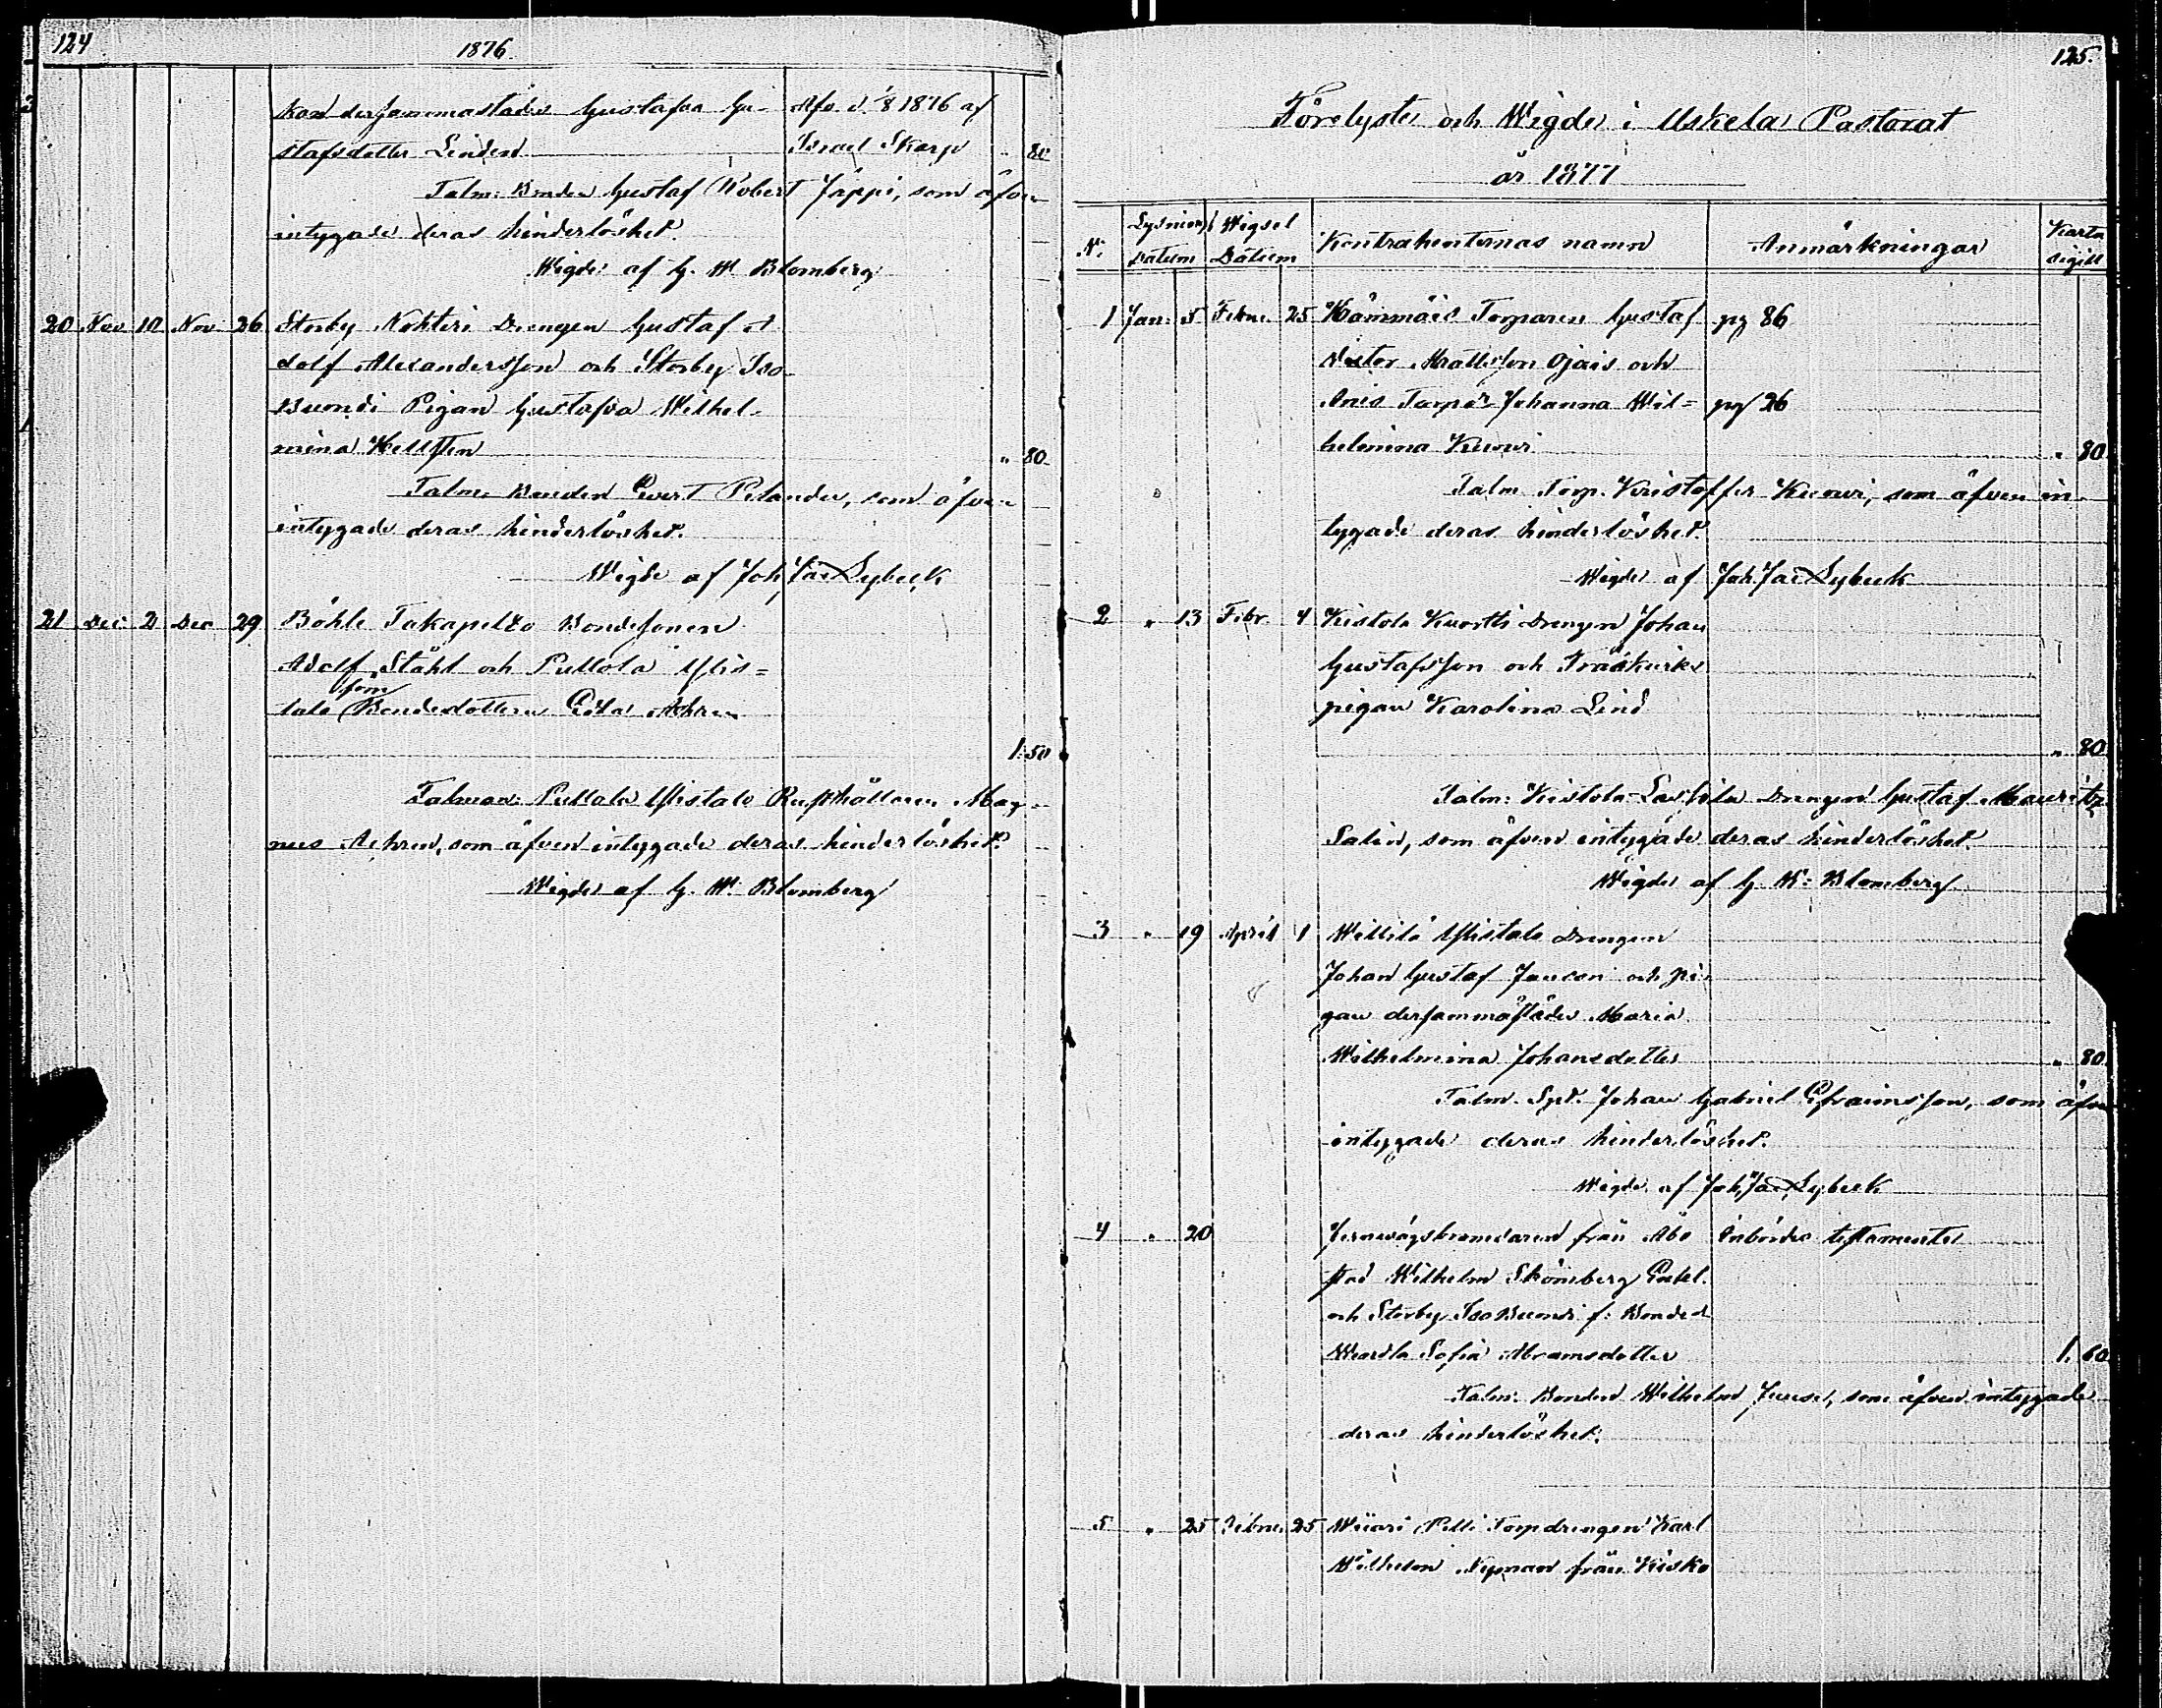 124
1876.
kan dersammastädes Gustafva Gu- Afs. d. 1/8 1876 af
stafsdotter Linden Israel Skarp " 80
Talm: Bonden Gustaf Robert Jäppi, som äfven
intygade deras hinderlöshet.
Wigde af G. W. Blomberg
20 Nov 10 Nov 26 Storby Nohteri Drengen Gustaf A
dolf Alexandersson och Storby Iso
Buondi Pigan Gustafva Wilhel-
mina Hellsten " 80
Talm. Bonden Evert Pelander, som äfven
intygade deras hinderlöshet.
Wigde af Joh. Jac. Lybeck
21 Dec 2 Dec 29 Böhle Takapelto Bondesonen
Adolf Ståhl och Pullola Ylis-
talo förr Bondedottern Edla Achren
1:50
Talman: Pullola Ylistalo Rusthållaren Mag-
nus Achren, som äfven intygade deras hinderlöshet.
Wigde af G. W. Blomberg
125.
Förelyste och Wigde i Uskela Pastorat
år 1877
No. Lysnings Datum Wigsel Datum Kontrahenternas namn Anmärkningar Karta sigill
1 Jan. 5 Febru. 25 Hämmäis Torparen Gustaf pg 86
Victor Mattsson Ojais och
Anis Torpdr Johanna Wil- pg 26
helmina Kuowi " 80
Talm Torp. Kristoffer Kuowi, som äfven in-
tygade deras hinderlöshet.
Wigde af Joh. Jac. Lybeck
2 " 13 Febr. 4 Kistola Knorthi Drengen Johan
Gustafsson och Träskurks
pigan Karolina Lind
" 80
Talm: Kistola Lassila Drengen Gustaf Mauritz
Salin, som äfven intygade deras hinderlöshet.
Wigde af G. W. Blomberg
3 " 19 April 1 Willilä Ylistalo Drengen
Johan Gustaf Janson och pi-
gan dersammastädes Maria
Wilhelmina Johansdotter " 80
Talm. Syt. Johan Gabriel Efraimsson, som äfven
intygade deras hinderlöshet.
Wigde af Joh. Jac. Lybeck
4 " 20 Jernvägsbromsaren från Åbo Inbördes testamente
stad Wilhelm Skönberg Enkl.
och Storby Iso Buondi f. Bonded
Wendla Sofia Abramsdotter 1. 60
Talm: Bonden Wilhelm Junsel, som äfven intygade
deras hinderlöshet.
5 " 25 Febru. 25 Wiiari Pilli Torpdrengen Karl
Wilhelm Nyman från Kisko